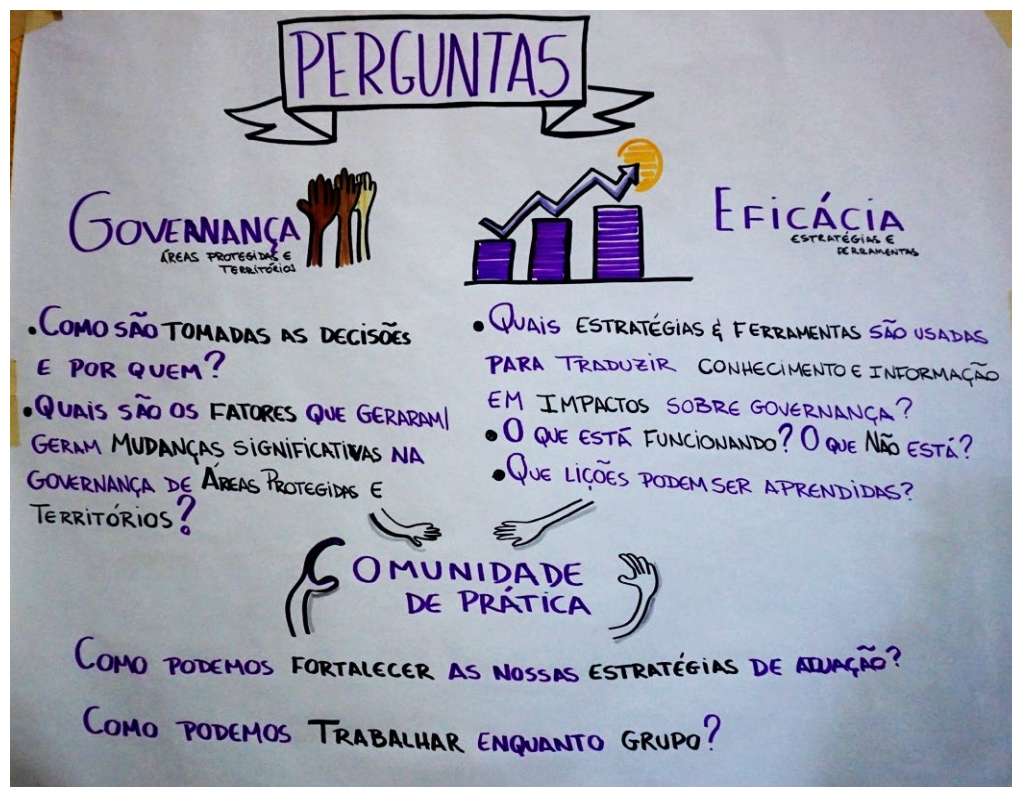 PERGUNTAS
GOVERNANÇA
ÁREAS PROTEGIDAS E
TERRITÓRIOS
• COMO SÃO TOMADAS AS DECISÕES
E POR QUEM?
• QUAIS SÃO OS FATORES QUE GERARAM/
GERAM MUDANÇAS SIGNIFICATIVAS NA
GOVERNANÇA DE ÁREAS PROTEGIDAS E
TERRITÓRIOS?
EFICÁCIA
ESTRATÉGIAS E
FERRAMENTAS
• QUAIS ESTRATÉGIAS & FERRAMENTAS SÃO USADAS
PARA TRADUZIR CONHECIMENTO E INFORMAÇÃO
EM IMPACTOS SOBRE GOVERNANÇA?
• O QUE ESTÁ FUNCIONANDO? O QUE NÃO ESTÁ?
• QUE LIÇÕES PODEM SER APRENDIDAS?
COMUNIDADE
DE PRÁTICA
COMO PODEMOS FORTALECER AS NOSSAS ESTRATÉGIAS DE ATUAÇÃO?
COMO PODEMOS TRABALHAR ENQUANTO GRUPO?